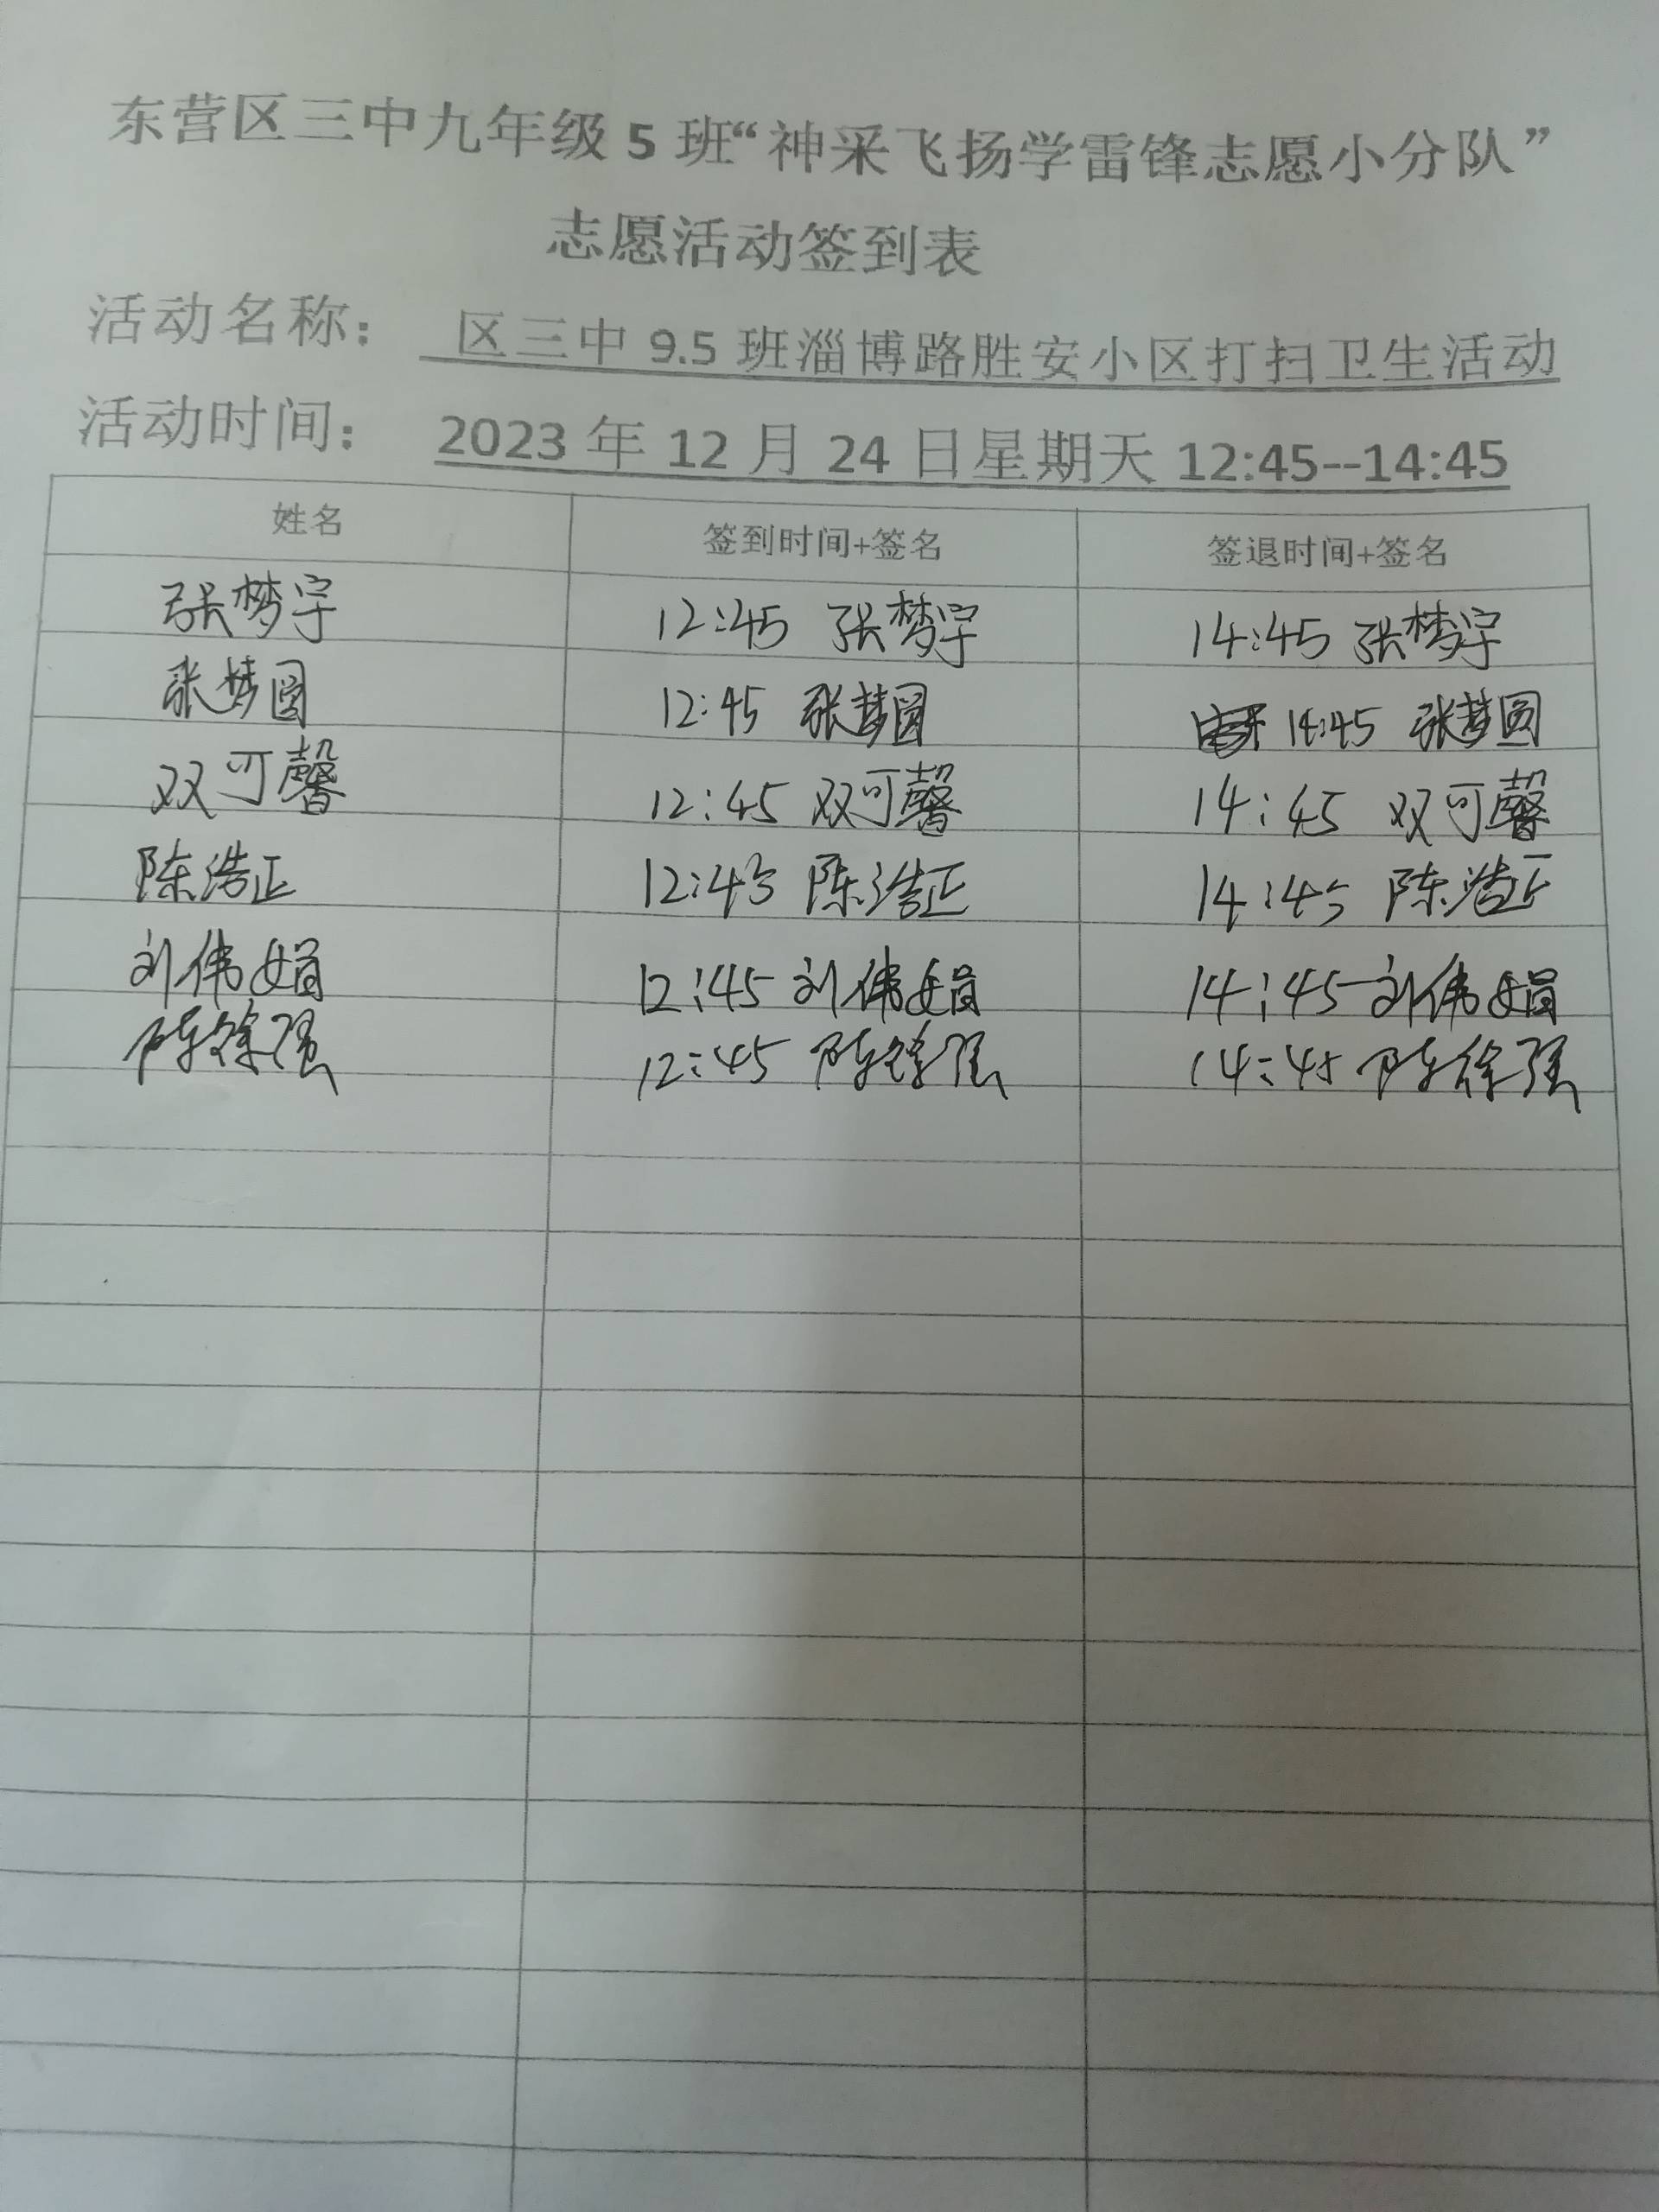 东营区三中九年级 5 班“神采飞扬学雷锋志愿小分队”
志愿活动签到表
活动名称： 区三中 9.5 班淄博路胜安小区打扫卫生活动
活动时间： 2023 年 12 月 24 日星期天 12:45--14:45
姓名 签到时间+签名 签退时间+签名
张梦宇 12:45 张梦宇 14:45 张梦宇
张梦圆 12:45 张梦圆 14:45 张梦圆
双可馨 12:45 双可馨 14:45 双可馨
陈浩正 12:45 陈浩正 14:45 陈浩正
刘伟娟 12:45 刘伟娟 14:45 刘伟娟
12:45 14:45